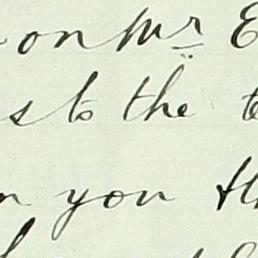 on Mr. E
s to the t
n you th